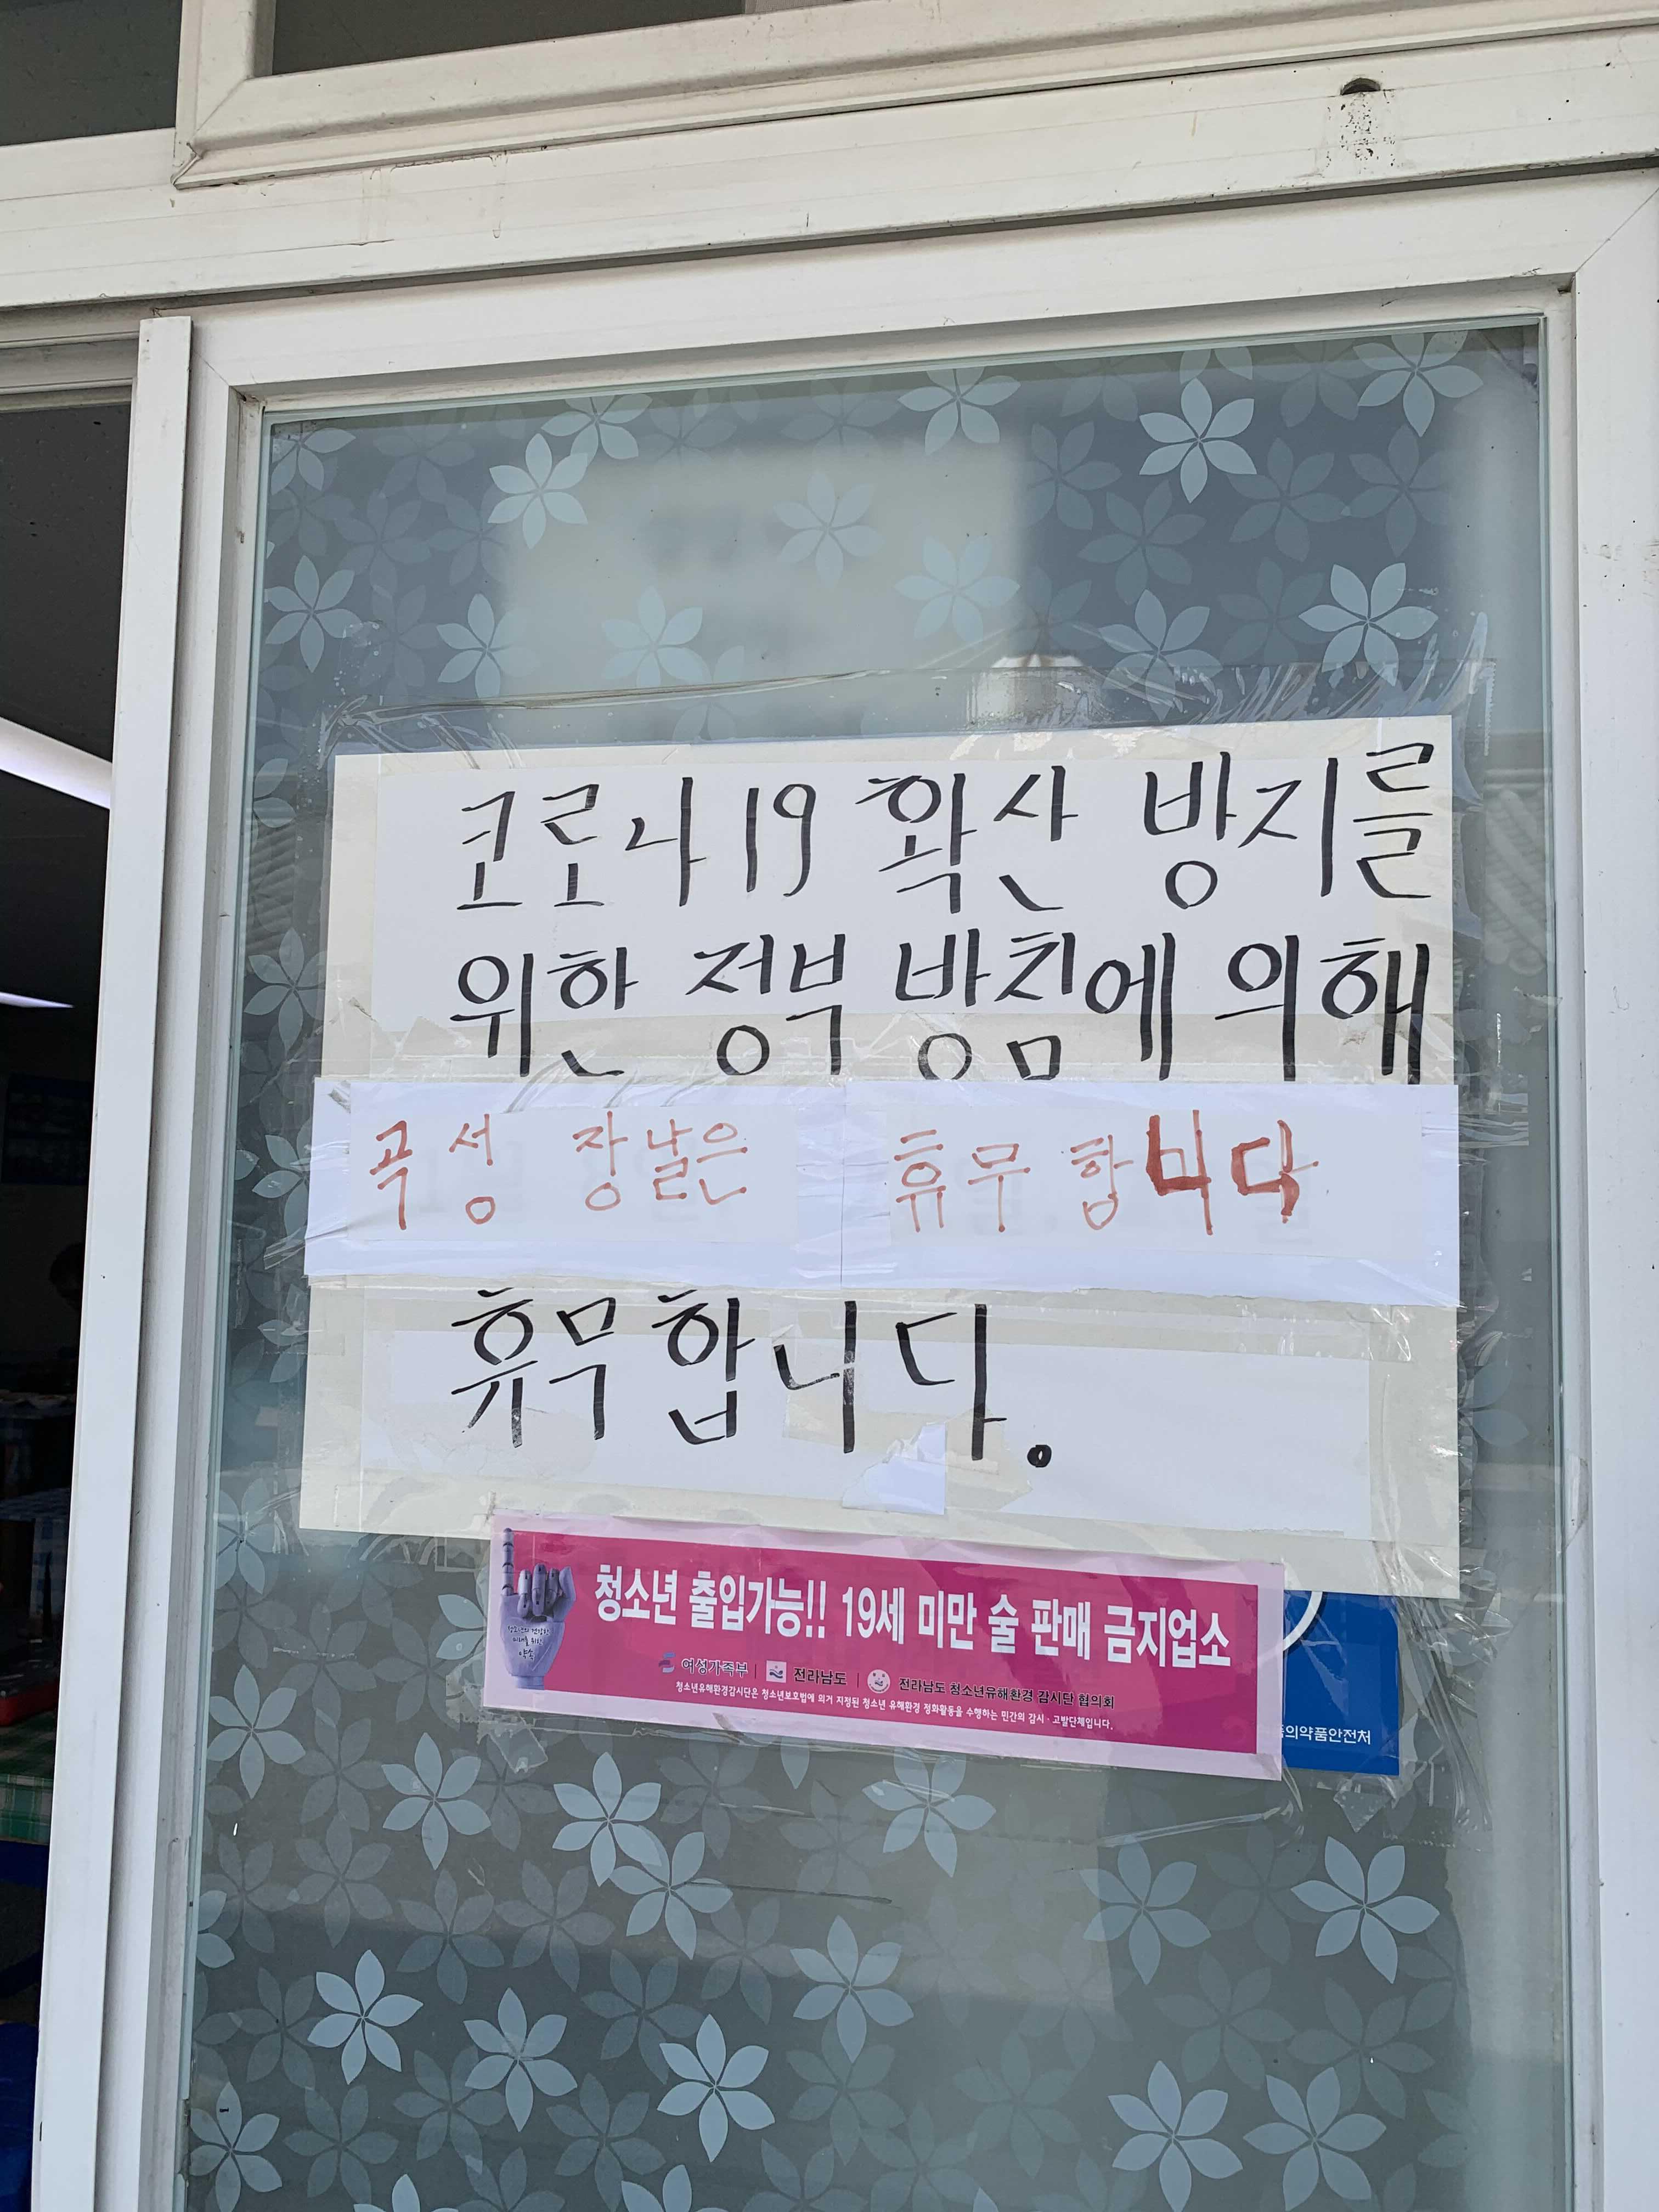 코로나19 확산 방지를
위한 정부 방침에 의해
곡성 장날은 휴무합니다
휴무합니다.
청소년 출입가능!! 19세 미만 술 판매 금지업소
여성가족부 | 전라남도 | 전라남도 청소년유해환경 감시단 협의회
청소년유해환경감시단은 청소년보호법에 의거 지정된 청소년 유해환경 정화활동을 수행하는 민간의 감시·고발단체입니다.
의약품안전처